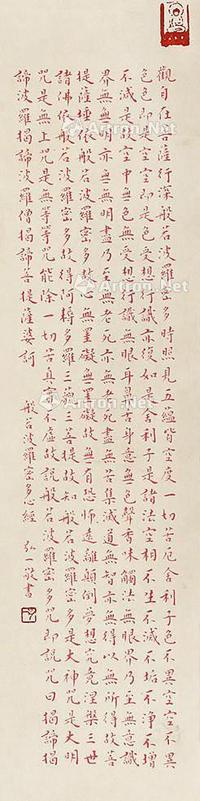 觀自在菩薩行深般若波羅蜜多時照見五蘊皆空度一切苦厄舍利子色不異空空不異
色色即是空空即是色受想行識亦復如是舍利子是諸法空相不生不滅不垢不淨不增
不減是故空中無色無受想行識無眼耳鼻舌身意無色聲香味觸法無眼界乃至無意識
界無無明亦無無明盡乃至無老死亦無老死盡無苦集滅道無智亦無得以無所得故菩
提薩埵依般若波羅蜜多故心無罣礙無罣礙故無有恐怖遠離顛倒夢想究竟涅槃三世
諸佛依般若波羅蜜多故得阿耨多羅三藐三菩提故知般若波羅蜜多是大神咒是大明
咒是無上咒是無等等咒能除一切苦真實不虛故說般若波羅蜜多咒即說咒曰揭諦揭
諦波羅揭諦波羅僧揭諦菩提薩婆訶
般若波羅蜜多心經 弘一敬書